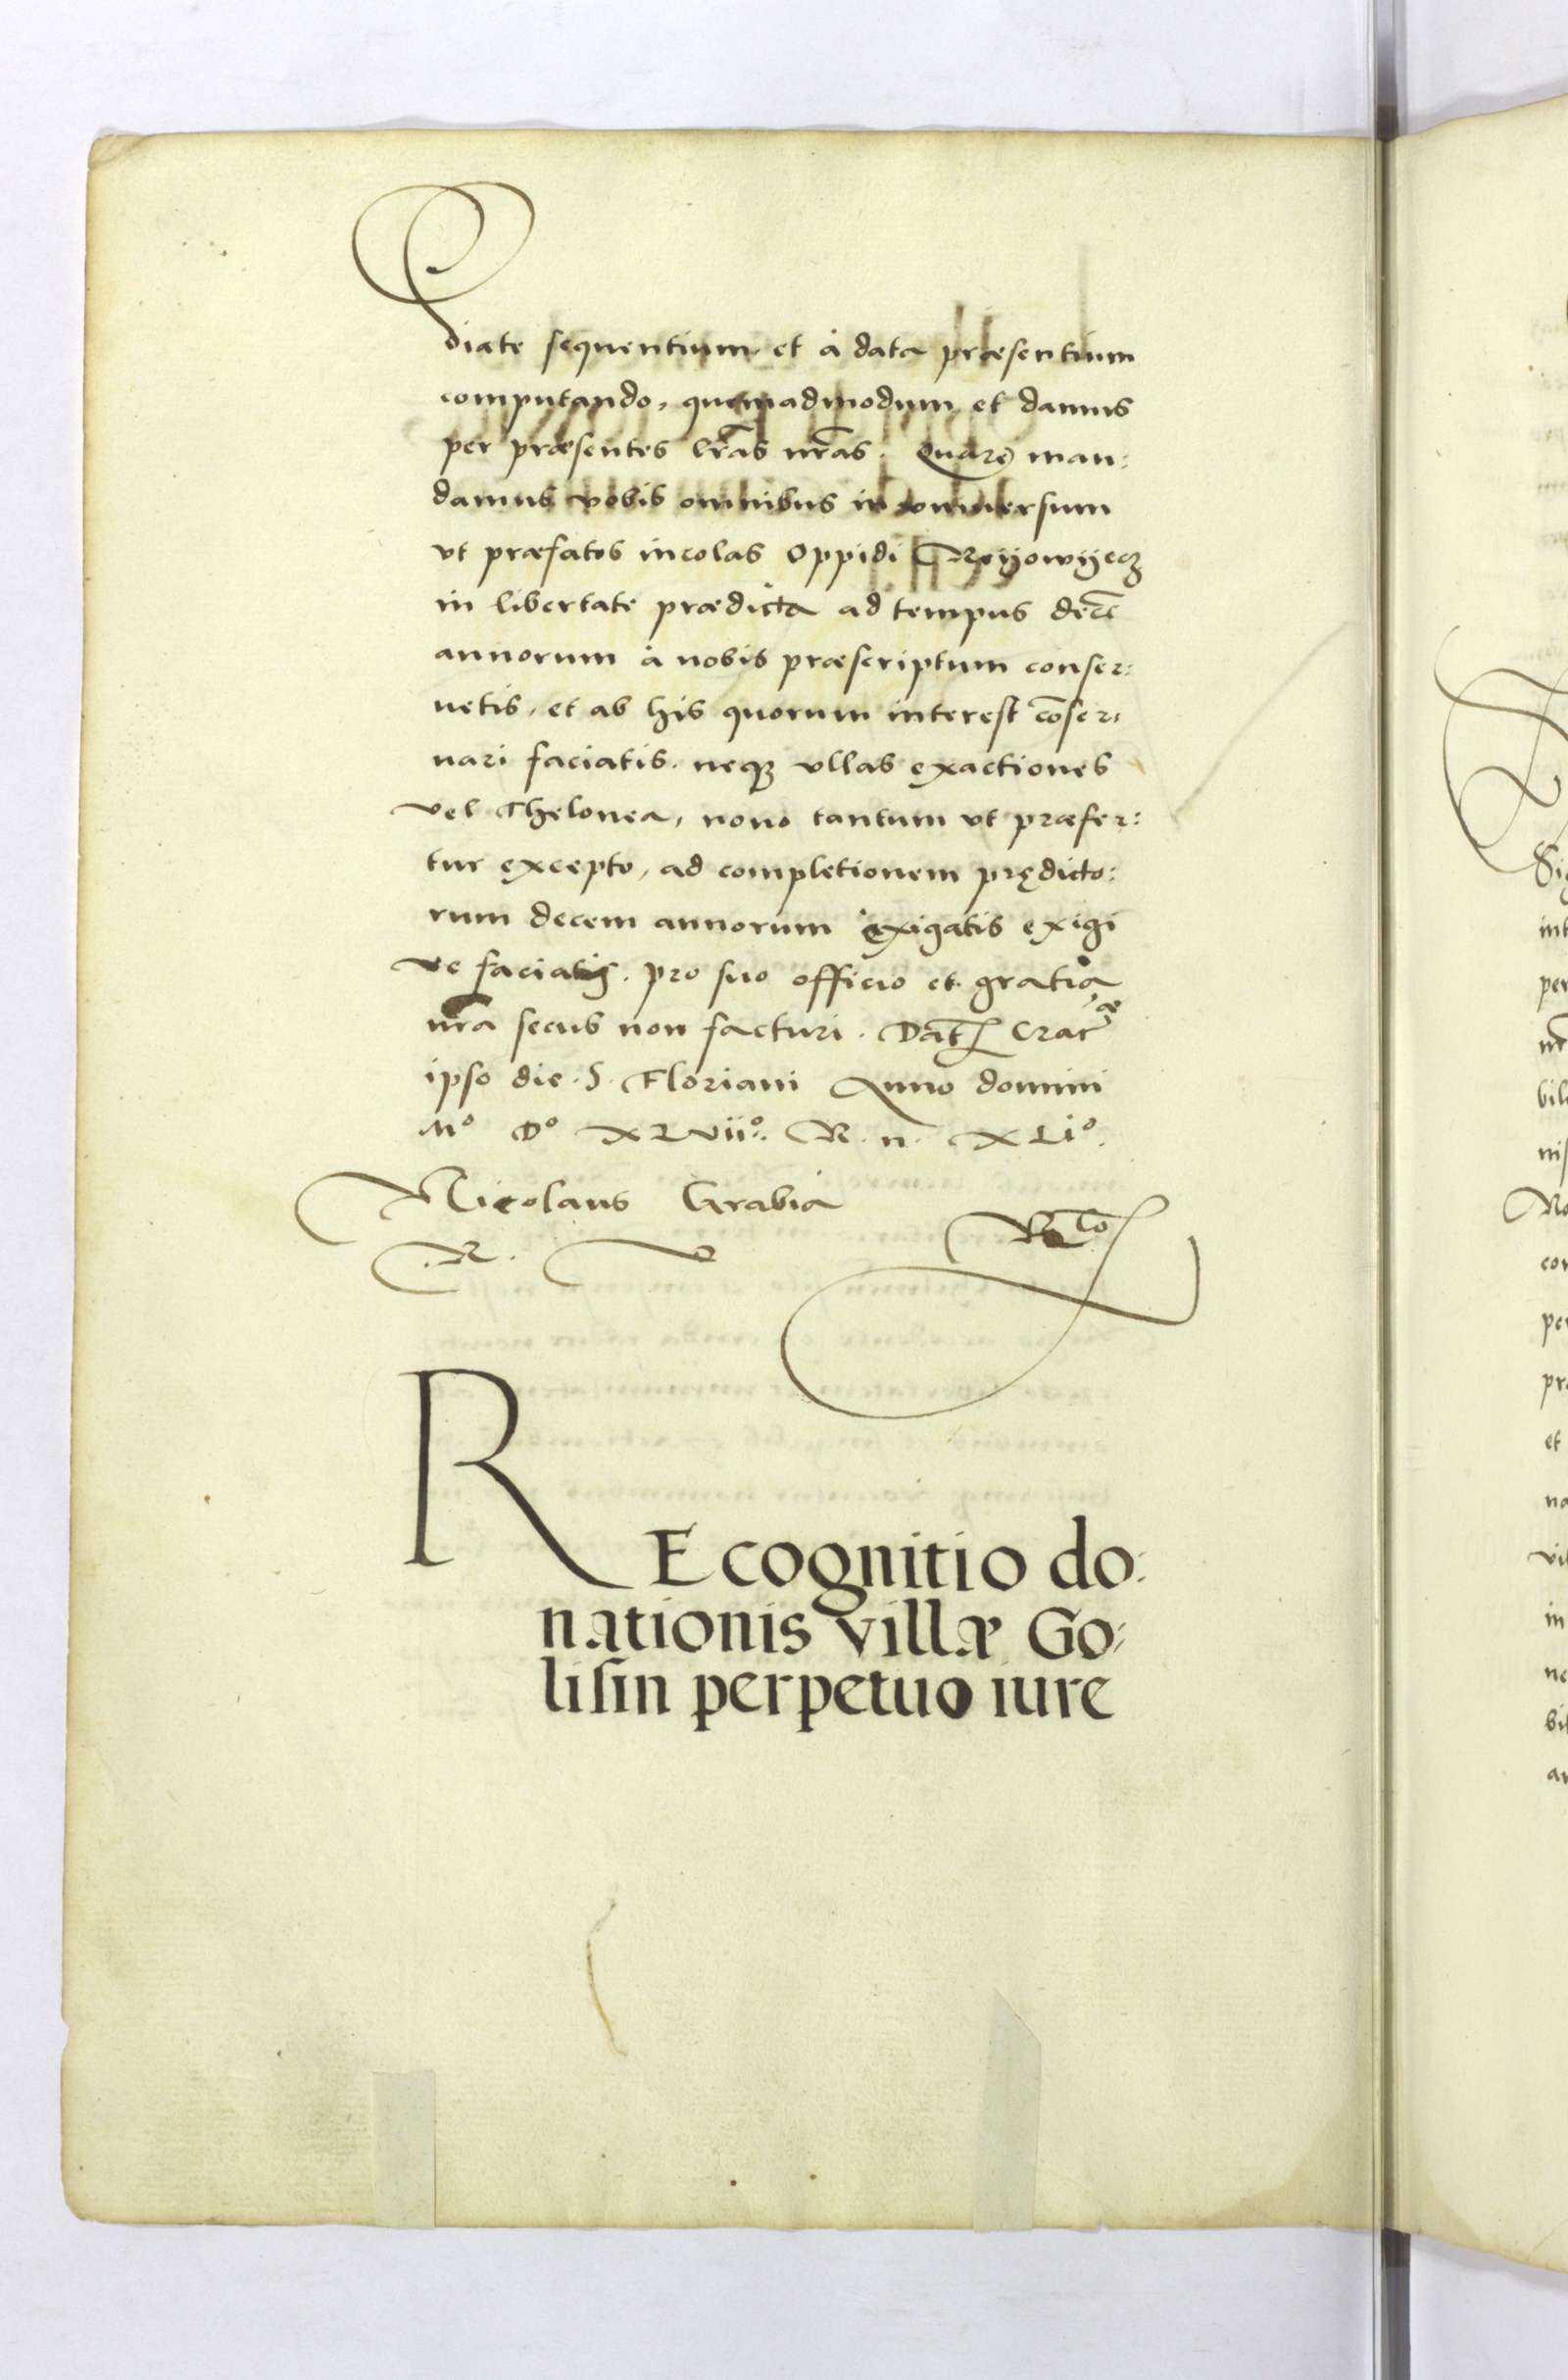 diate sequentium et à data præsentium
computando, quemadmodum et damus
per præsentes lr̃as nr̃as. Quare man:
damus vobis omnibus in communersum
vt præfatos incolas Oppidi Reyowyecz
in libertate prædicta ad tempus decẽ
annorum à nobis præscriptum conser:
uetis, et ab his quorum interest cõser:
uari faciatis. neq3 vllas exactiones
vel Thelonea, nouo tantum vt præfer:
tur excepto, ad completionem prędicto:
rum decem annorum exigatis exigi
ve faciatis. pro suo officio et gratia
nr̃a secus non facturi. Dat̃ Crac
ipso die .S. Floriani Anno domini
Mº Dº XLviiº. R. n. XLiº.
Nicolaus Grabia
.R.
REcognitio do:
nationis villæ Go:
lisin perpetuo iure
Sig
int
per
nr̃
bil
nis
No
con
per
pr
et
na
vil
in
ne
bil
an